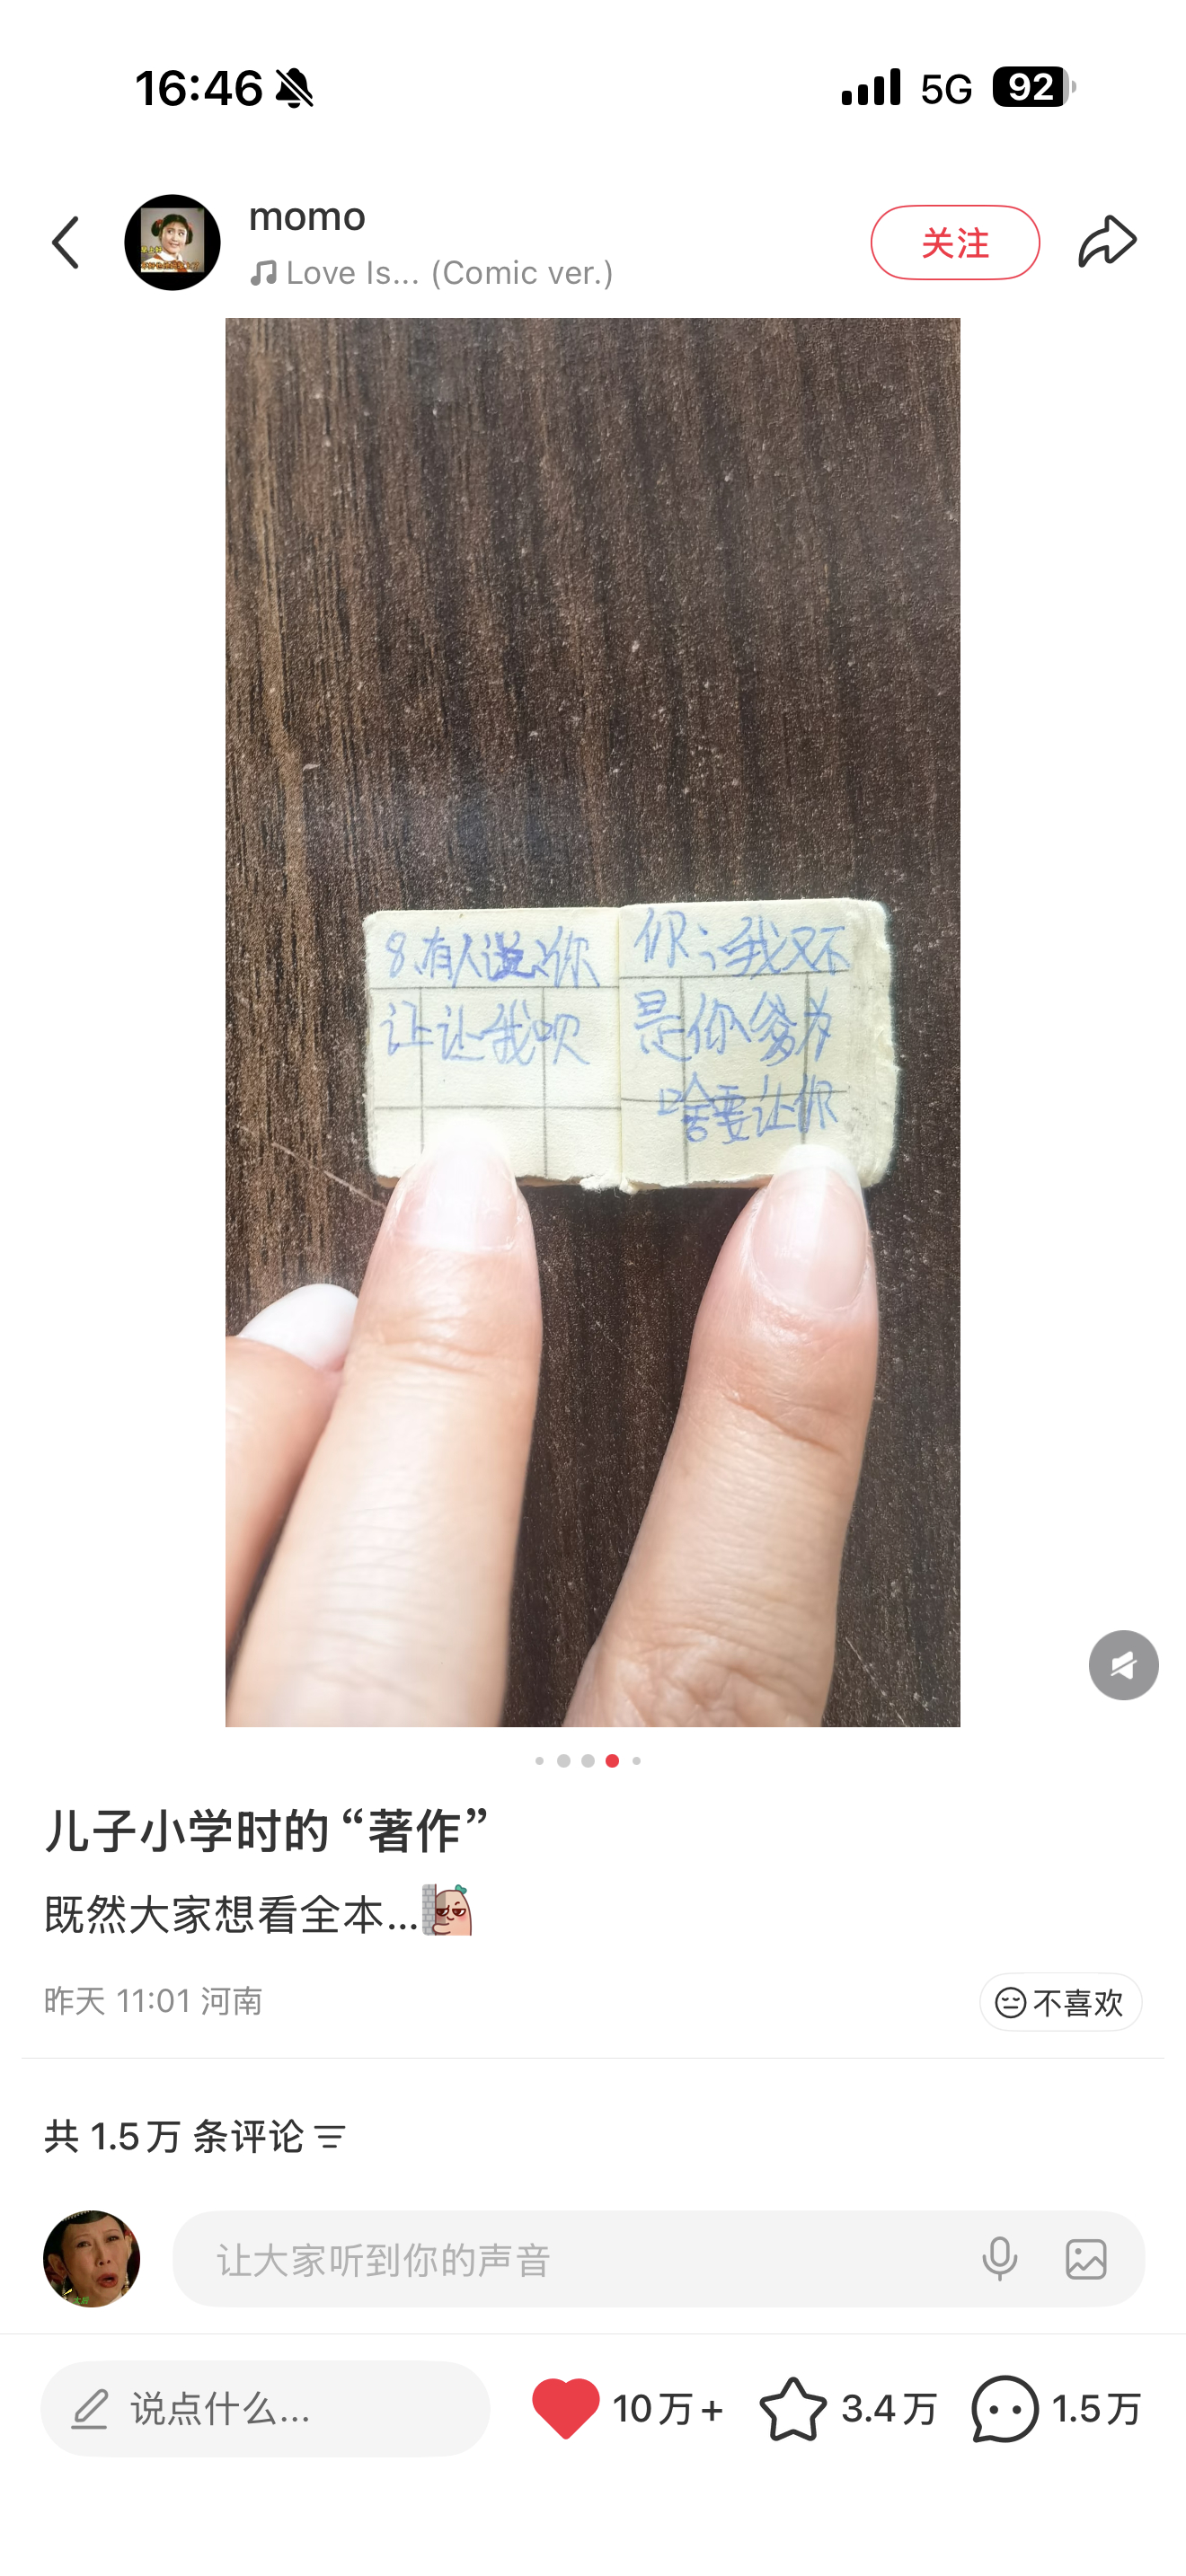 16:46
5G 92
momo
Love Is... (Comic ver.)
关注
8、有人说:你
让让我呗
你:我又不
是你爹为
啥要让你
儿子小学时的“著作”
既然大家想看全本...
昨天 11:01 河南
不喜欢
共 1.5万 条评论
让大家听到你的声音
说点什么...
10万+
3.4万
1.5万